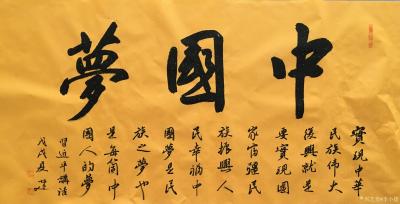 中國夢
實現中華
民族偉大
復興就是
要實現國
家富強民
族振興人
民幸福中
國夢是民
族之夢也
是每箇中
國人的夢
習近平講話
戊戌夏